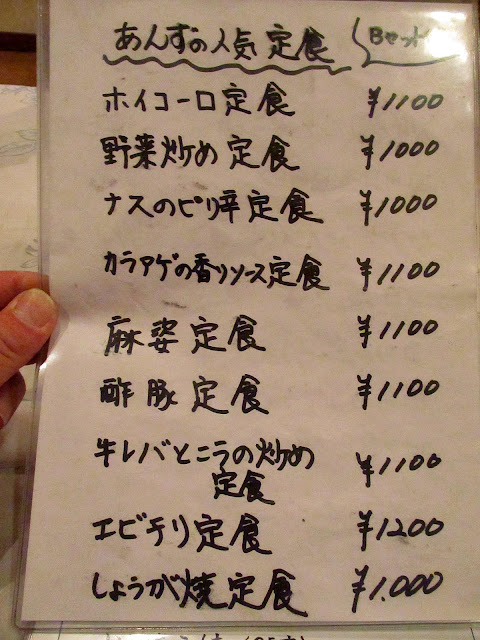 あんずの人気定食 Bセット
ホイコーロ定食 ¥1100
野菜炒め定食 ¥1000
ナスのピリ辛定食 ¥1000
カラアゲの香りソース定食 ¥1100
麻婆定食 ¥1100
酢豚定食 ¥1100
牛レバとニラの炒め
定食 ¥1100
エビチリ定食 ¥1200
しょうが焼定食 ¥1.000